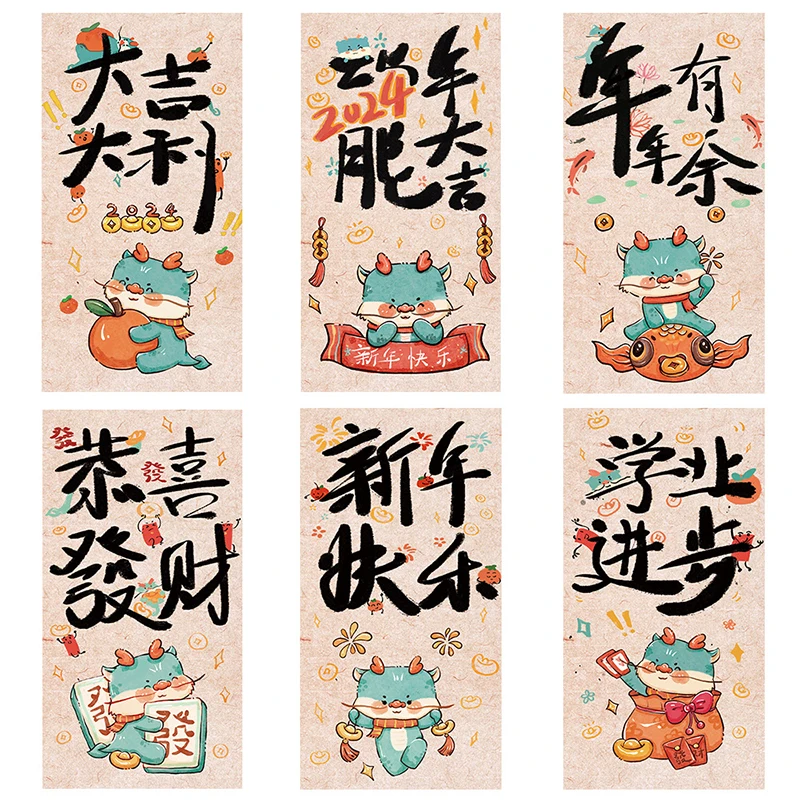 大吉
大利
2024
龍年
2024
大吉
新年快乐
年有
年余
發
恭喜
發
發财
發
發
新年
快乐
学业
进步